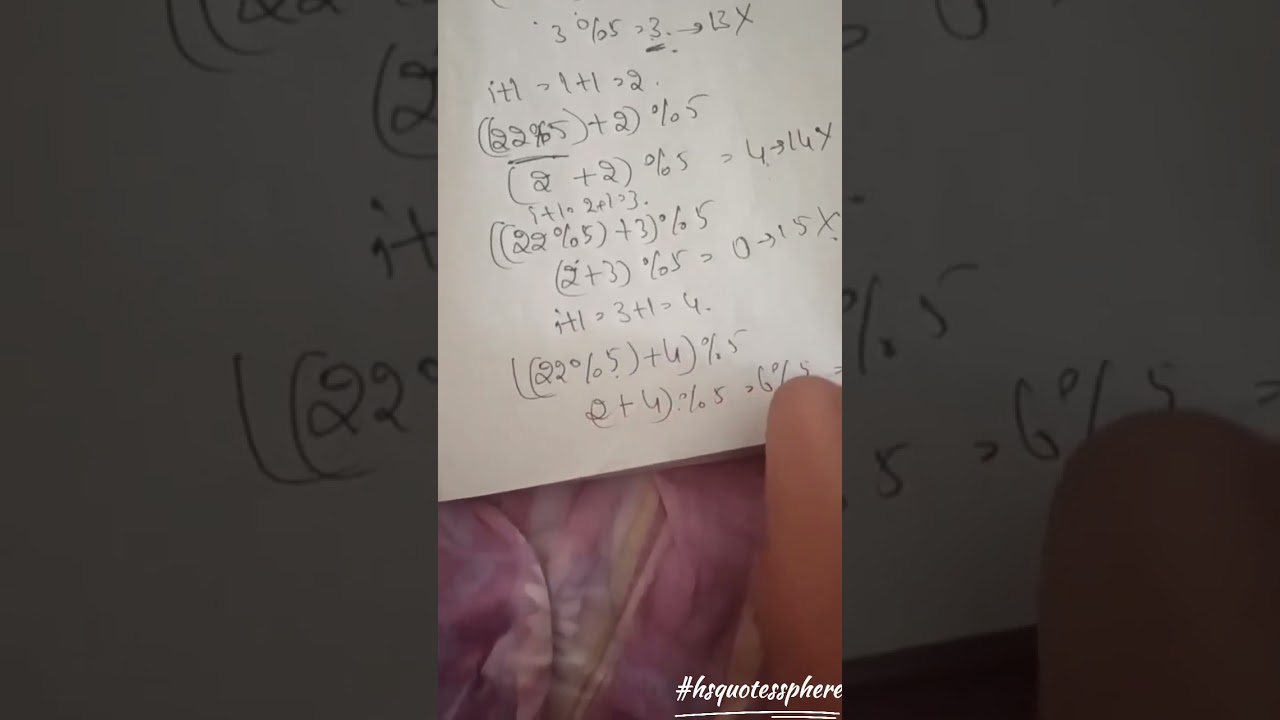 3 % 5 = 3. → 13 X
i+1 = 1+1 = 2.
((22%5)+2) % 5
(2 + 2) % 5 = 4 → 14 X
i+1 = 2+1 = 3.
((22%5)+3) % 5
(2+3) % 5 = 0 → 15 X
i+1 = 3+1 = 4.
((22%5)+4) % 5
2+4) % 5 = 6 % 5 =
#hsquotessphere